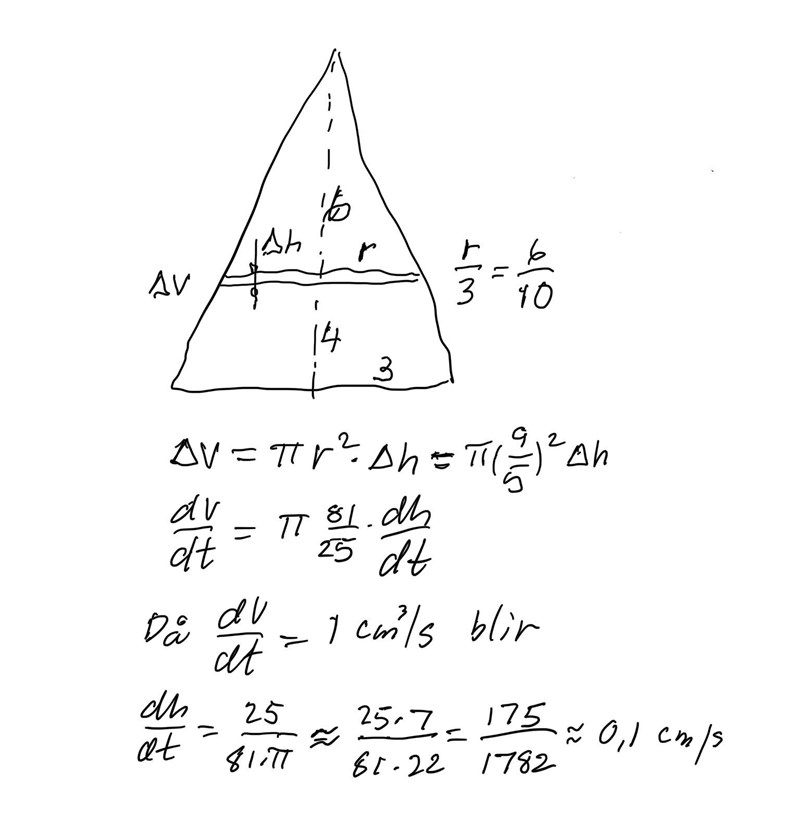 6
Δh r
ΔV
r/3 = 6/10
4
3
ΔV = π r² · Δh = π(9/5)² Δh
dV/dt = π 81/25 · dh/dt
Då dV/dt = 1 cm³/s blir
dh/dt = 25/81·π ≈ 25·7/81·22 = 175/1782 ≈ 0,1 cm/s